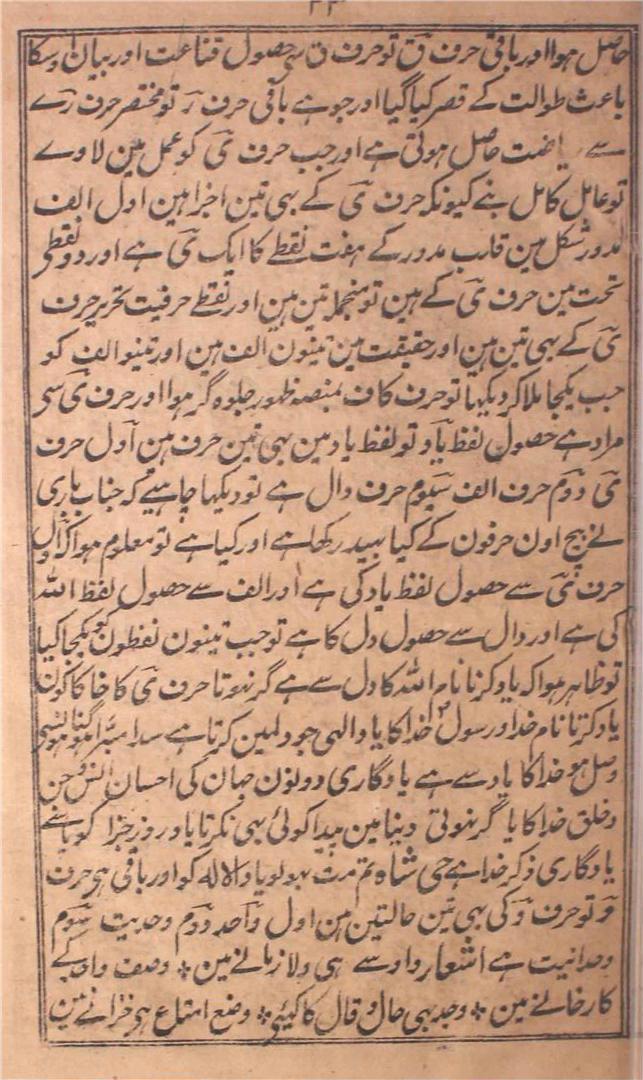 ۲۳
حاصل ہوا اور باقی حرف ق تو حرف ق سے حصول قناعت اور بیان اوسکا
باعث طوالت کے قصر کیا گیا اور جو ہے باقی حرف ر تو مختصر حرف رے
سے ریاضت حاصل ہوتی ہے اور جب حرف ی کو عمل مین لاوے
تو عامل کامل بنے کیونکہ حرف ی کے بہی تین اجزا ہین اول الف
مدور شکل مین قارب مدور کے ہفت نقطے کا ایک ی ہے اور دو نقطی
تحت مین حرف ی کے ہین تو منجملہ تین ہین اور نقطے حرفیت تحریر حرف
ی کے بہی تین ہین اور حقیقت مین تینون الف ہین اور تینو الف کو
جب یکجا ملا کر دیکہا تو حرف کاف بمنصہ ظہور جلوہ گر ہوا اور حرف ی سی
مراد ہے حصول لفظ یاد تو لفظ یاد مین بہی تین حرف ہین اول حرف
ی دوم حرف الف سیوم حرف دال ہے تو دیکہا چاہیے کہ جناب باری
نے بیچ اون حرفون کے کیا بہید رکہا ہے اور کیا ہے تو معلوم ہوا کہ اول
حرف ی سے حصول لفظ یاد کی ہے اور الف سے حصول لفظ اللہ
کی ہے اور دال سے حصول دل کا ہے تو جب تینون لفظون کو یکجا کیا
تو ظاہر ہوا کہ یاد کرنا نام اللہ کا دل سے ہے گر نہوتا حرف ی کا خاکا کون
یاد کرتا نام خدا و رسول خدا کا یاد الہی جو دلمین کرتا ہے سدا
وصل ہو خدا کا یاد سے ہے یادگاری دونون جہان کی احسان انس و جن
و خلق خدا کا یا گر نہوتی دینا مین پیدا کوئی بہی نکرتا یاد روز جزا کو
یادگاری ذکر خدا ہے جی شاہ تم مت بہولو یاد الا لہ کو اور باقی ہی حرف
و تو حرف و کی بہی تین حالتین ہین اول واحد دوم وحدیت سوم
وحدانیت ہے اشعار واو سے ہی ولا زمانے مین ٭ وصف واحد کے
کارخانے مین ٭ وجد بہی حال و قال کا کیئی ٭ وضع ہی خزانے مین